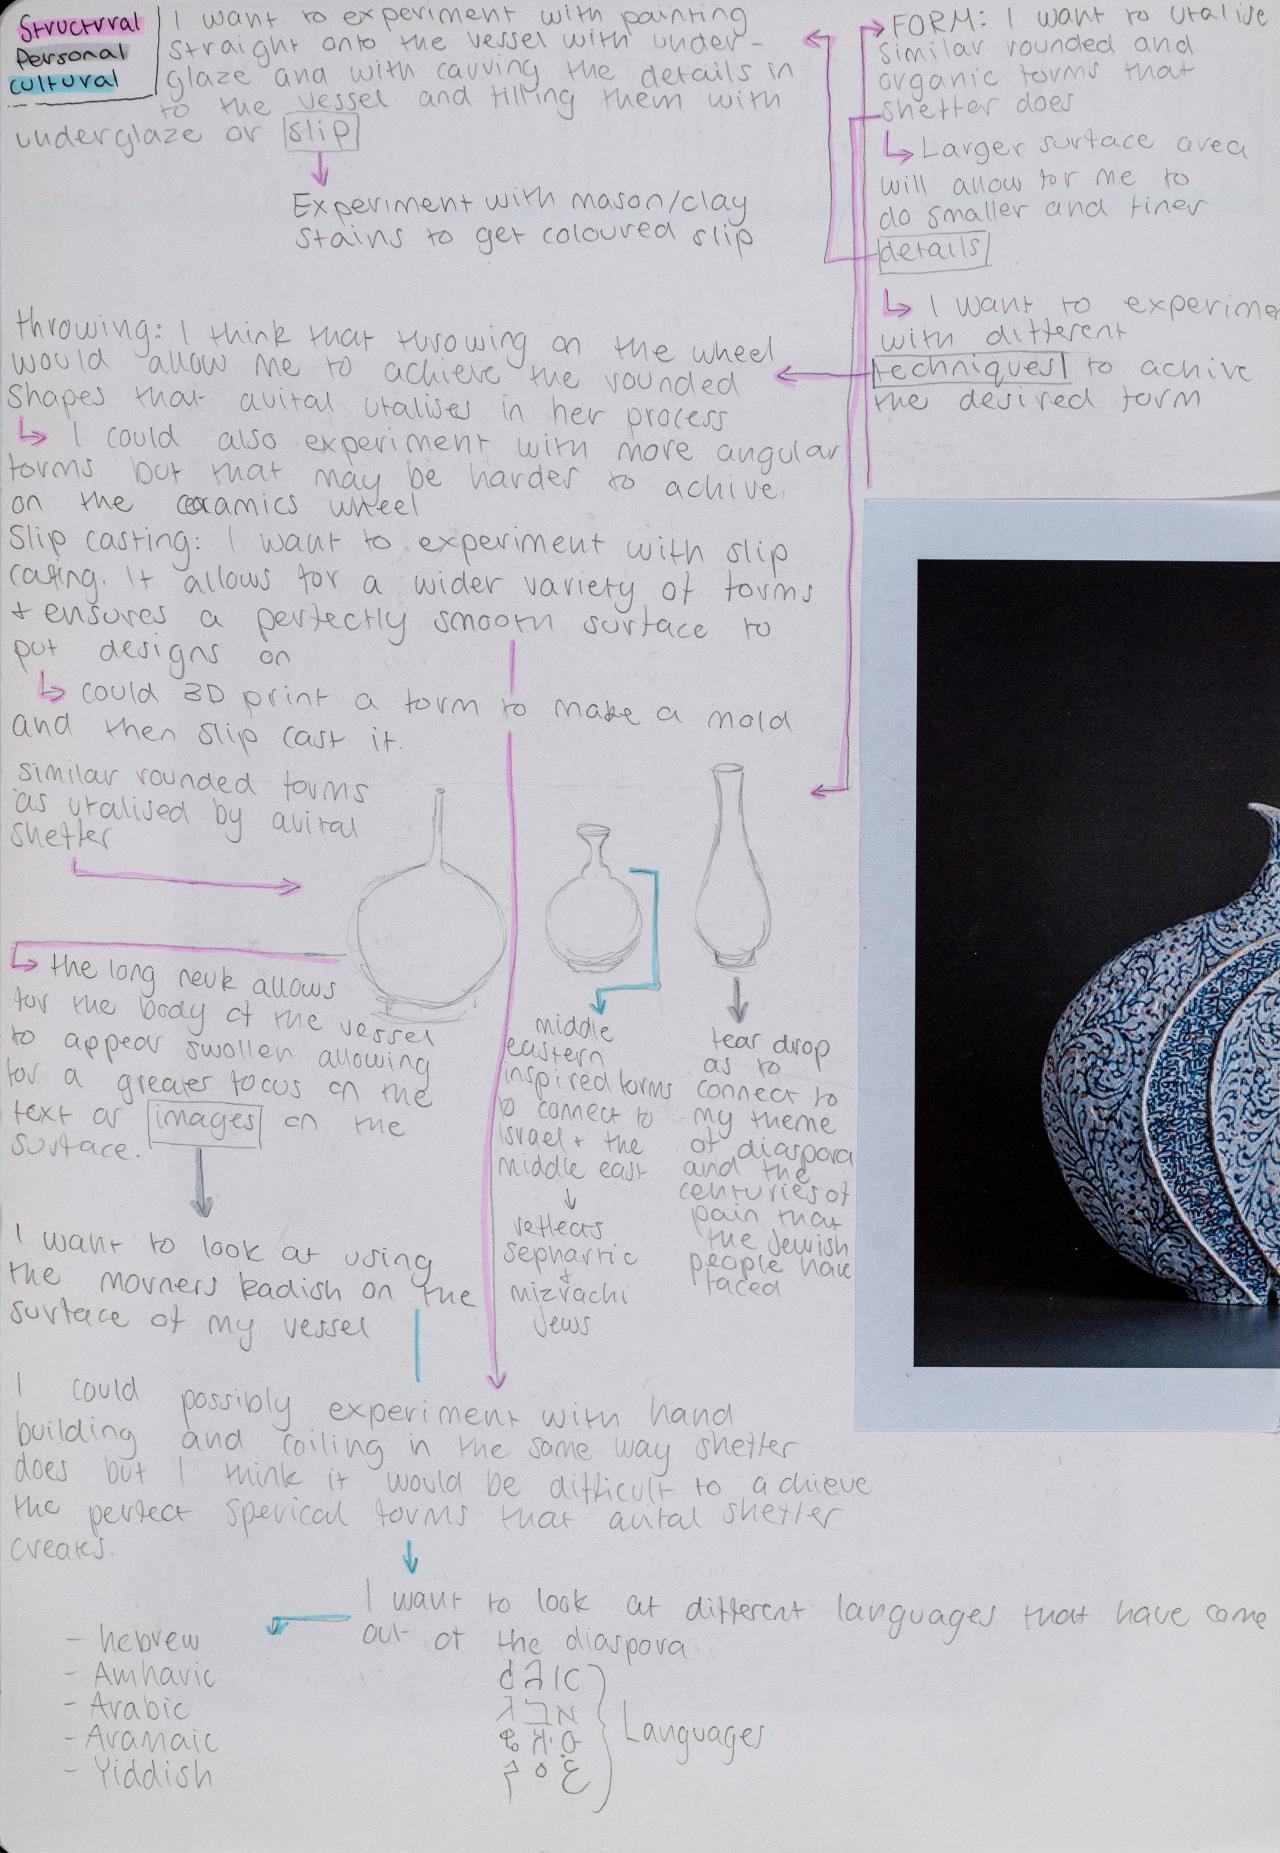 Structural
Personal
cultural
I want to experiment with painting
straight onto the vessel with under-
glaze and with carving the details in
to the vessel and filling them with
underglaze or slip
Experiment with mason/clay
stains to get coloured slip
FORM: I want to utalise
similar rounded and
organic forms that
shetter does
Larger surface area
will allow for me to
do smaller and finer
details
I want to experime
with different
techniques to achive
the desired form
throwing: I think that throwing on the wheel
would allow me to achieve the rounded
shapes that avital utalises in her process
I could also experiment with more angular
forms but that may be harder to achive
on the ceramics wheel
Slip casting: I want to experiment with slip
casting. It allows for a wider variety of forms
+ ensures a perfectly smooth surface to
put designs on
could 3D print a form to make a mold
and then slip cast it.
similar rounded forms
as utalised by avital
shetter
the long neck allows
for the body of the vessel
to appear swollen allowing
for a greater focus on the
text or images on the
surface.
middle
eastern
inspired forms
to connect to
israel + the
middle east
reflects
sephartic
+
mizrachi
Jews
tear drop
as to
connect to
my theme
of diaspora
and the
centuries of
pain that
the Jewish
people have
faced
I want to look at using
the morners kadish on the
surface of my vessel
I could possibly experiment with hand
building and coiling in the same way shetter
does but I think it would be difficult to achieve
the perfect sperical forms that avital shetter
creates.
I want to look at different languages that have come
out of the diaspora
- hebrew
- Amharic
- Arabic
- Aramaic
- Yiddish
Languages